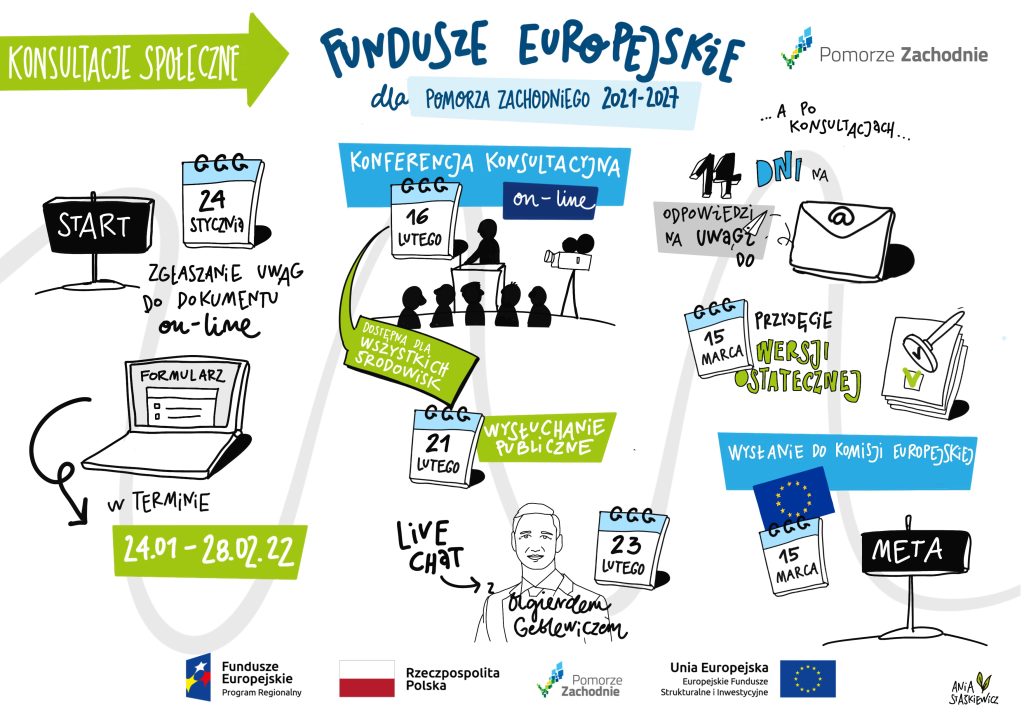 KONSULTACJE SPOŁECZNE
FUNDUSZE EUROPEJSKIE
dla POMORZA ZACHODNIEGO 2021-2027
Pomorze Zachodnie
START
24
STYCZNIA
ZGŁASZANIE UWAG
DO DOKUMENTU
on-line
FORMULARZ
W TERMINIE
24.01 – 28.02.22
KONFERENCJA KONSULTACYJNA
on-line
16
LUTEGO
DOSTĘPNA DLA
WSZYSTKICH
ŚRODOWISK
21
LUTEGO
WYSŁUCHANIE
PUBLICZNE
LIVE
CHAT
z
Olgierdem
Geblewiczem
23
LUTEGO
...A PO
KONSULTACJACH...
14 DNI NA
ODPOWIEDZI
NA UWAGI
DO
@
15
MARCA
PRZYJĘCIE
WERSJI
OSTATECZNEJ
WYSŁANIE DO KOMISJI EUROPEJSKIEJ
15
MARCA
META
Fundusze
Europejskie
Program Regionalny
Rzeczpospolita
Polska
Pomorze
Zachodnie
Unia Europejska
Europejskie Fundusze
Strukturalne i Inwestycyjne
ANIA
STAŚKIEWICZ